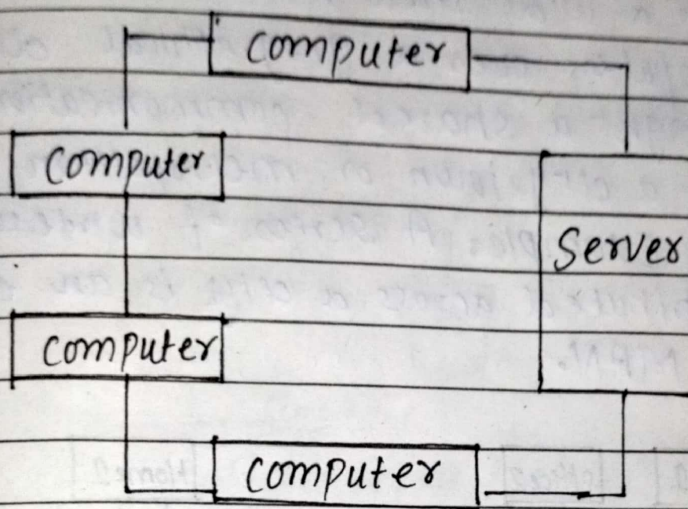 computer
computer
Server
computer
computer